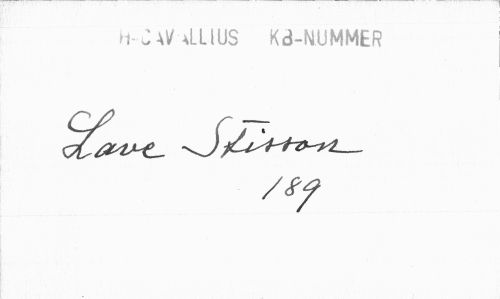 H-CAVALLIUS KB-NUMMER
Lave Stisson
189